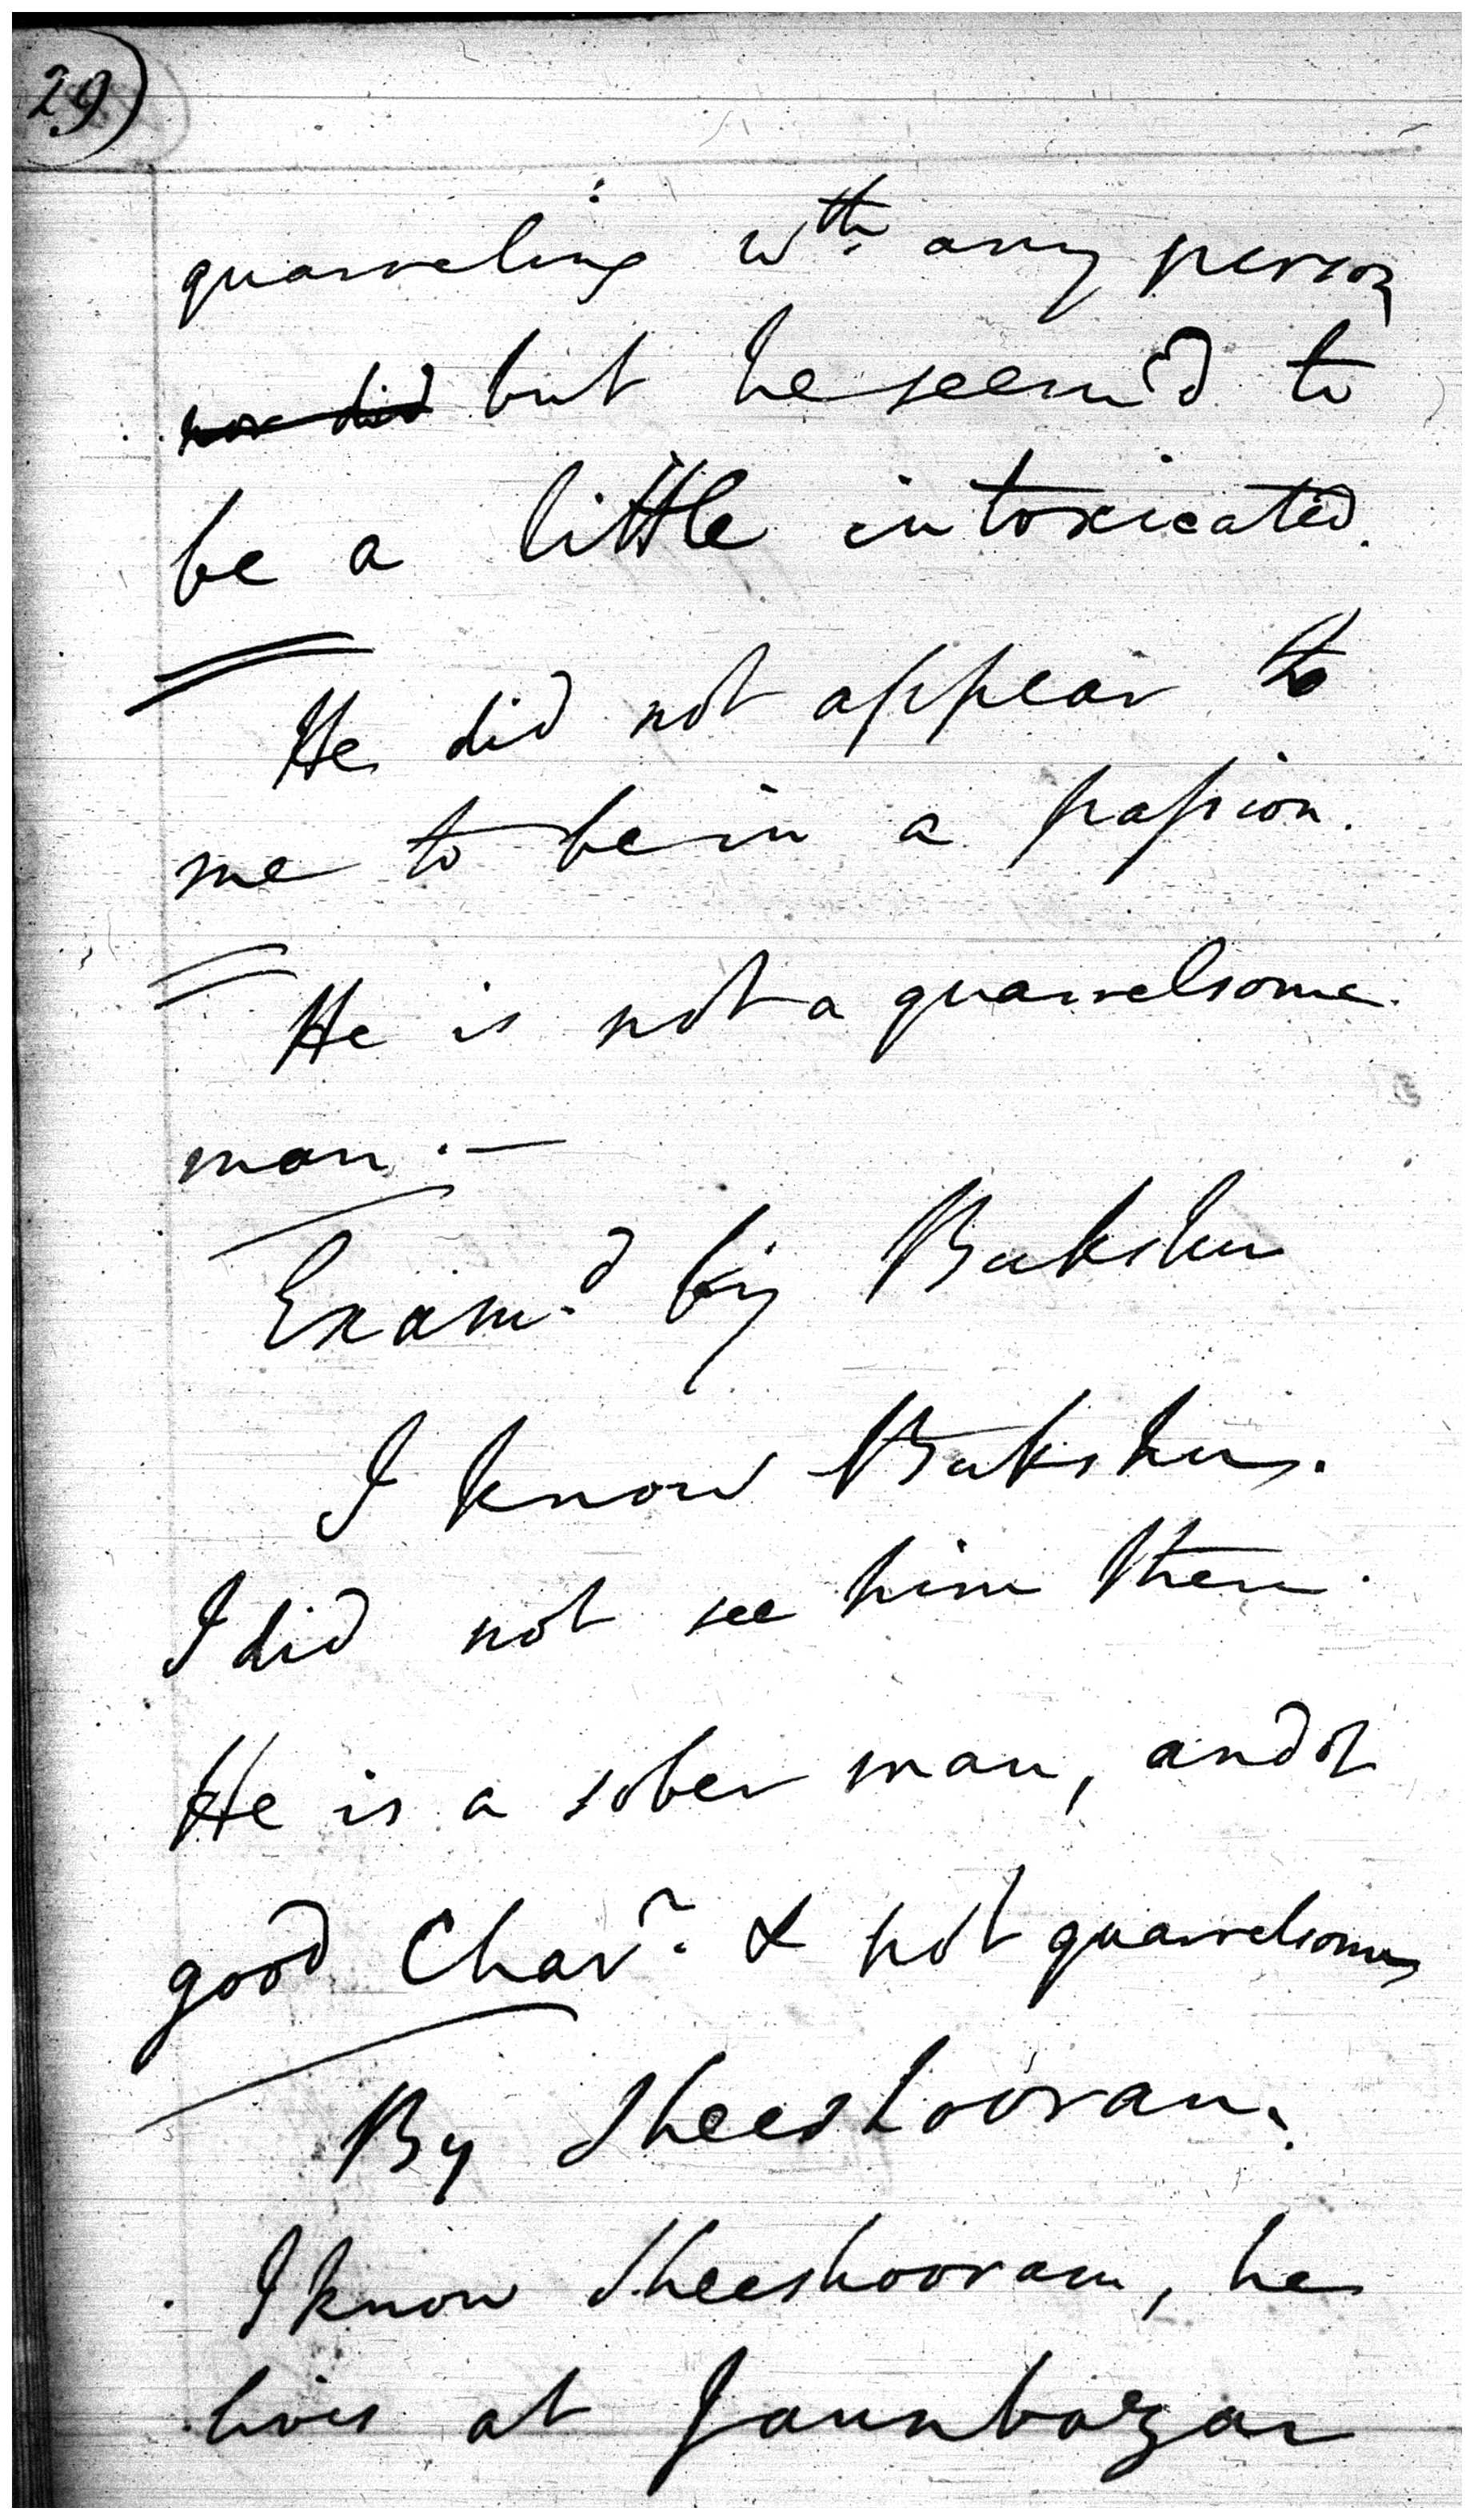 29
quarreling wth any person
nor did but he seem'd to
be a little intoxicated.
He did not appear to
me to be in a passion.
He is not a quarrelsome
man. —
Examd. by Bukshu
I know Bukshu.
I did not see him then.
He is a sober man, and of
good Charr. & not quarrelsome
By Sheeshooram.
I know Sheeshooram, he
lives at Jaunbazar